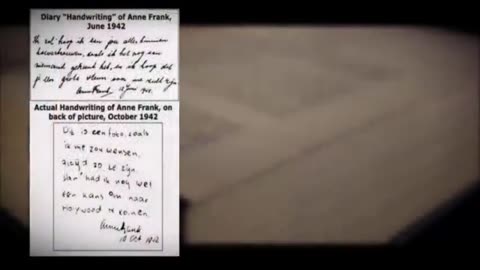 Diary "Handwriting" of Anne Frank,
June 1942
Ik zal hoop ik aan jou alles kunnen
toevertrouwen, zoals ik het nog aan
niemand gekund heb, en ik hoop dat
je een grote steun voor me zult zijn.
Anne Frank. 12 Juni 1942.
Actual Handwriting of Anne Frank, on
back of picture, October 1942
Dit is een foto, zoals
ik me zou wensen,
altijd zo te zijn.
Dan had ik nog wel
een kans om naar
Holywood te komen.
Anne Frank
10 Oct 1942